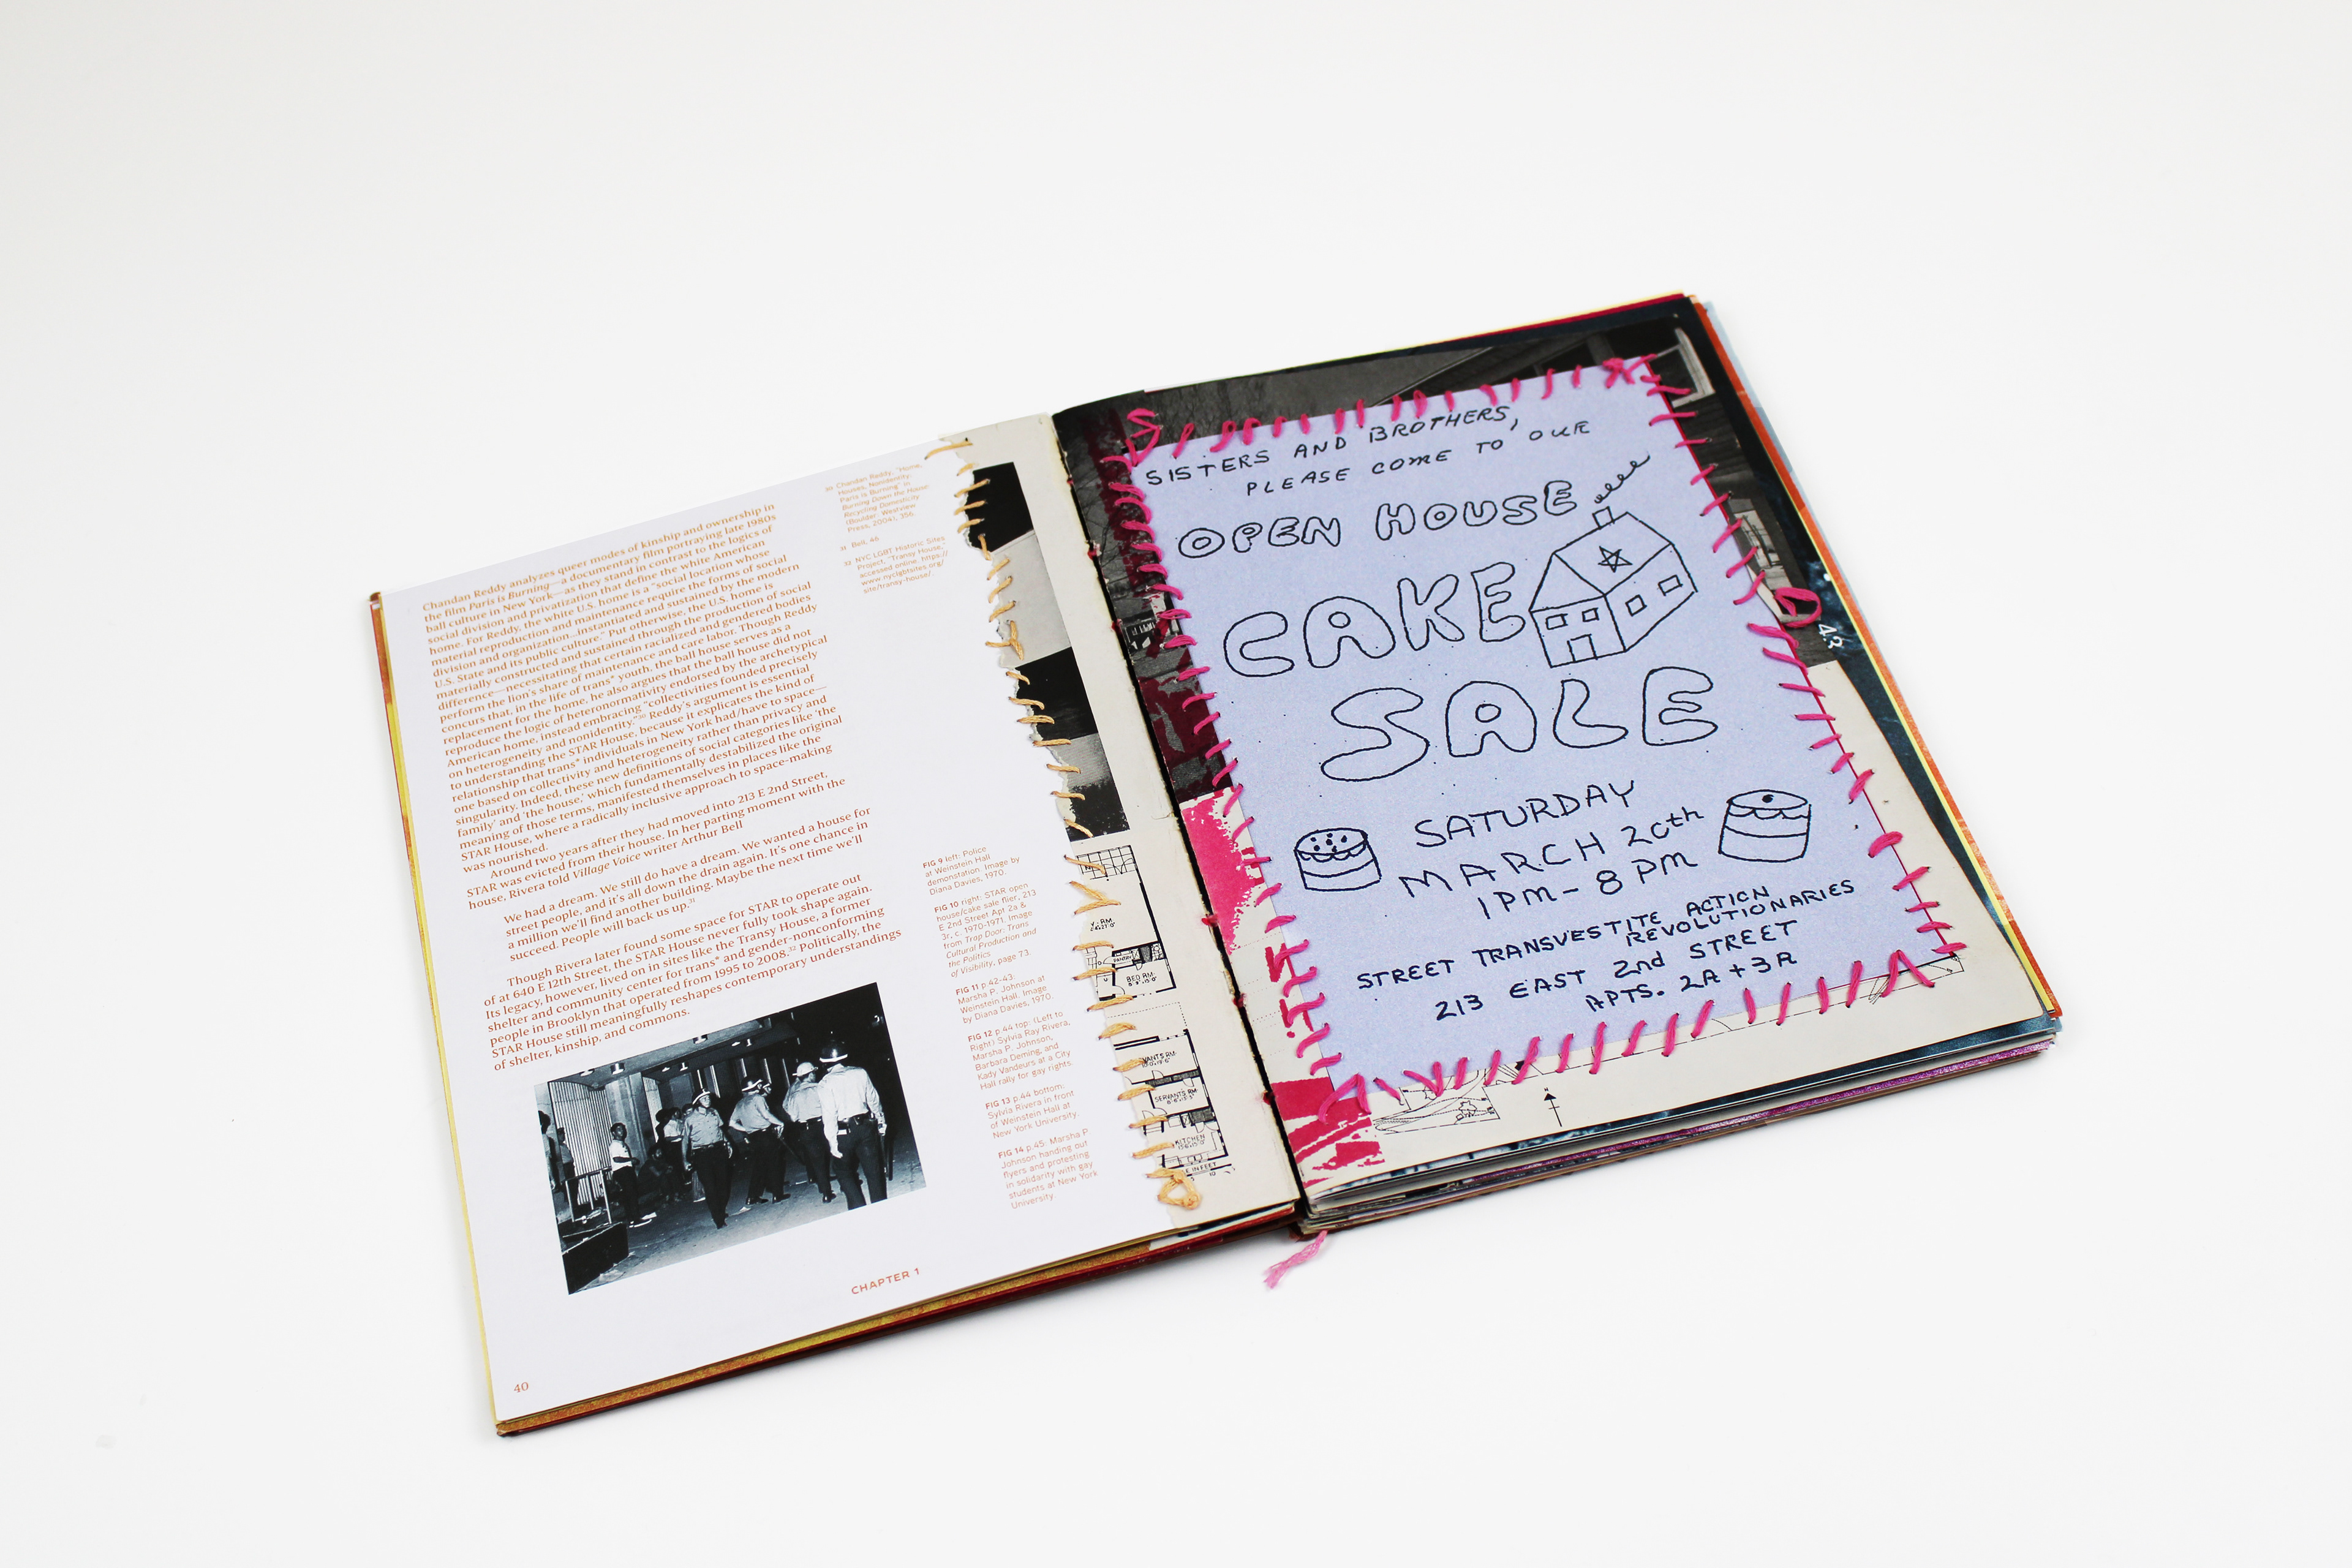 Chandan Reddy analyzes queer modes of kinship and ownership in
the film Paris is Burning—a documentary film portraying late 1980s
ball culture in New York—as they stand in contrast to the logics of
social division and privatization that define the white American
home. For Reddy, the white U.S. home is a "social location whose
material reproduction and maintenance require the forms of social
division and organization...instantiated and sustained by the modern
U.S. State and its public culture." Put otherwise, the U.S. home is
materially constructed and sustained through the production of social
difference—necessitating that certain racialized and gendered bodies
perform the lion's share of maintenance and care labor. Though Reddy
concurs that, in the life of trans* youth, the ball house serves as a
replacement for the home, he also argues that the ball house did not
reproduce the logic of heteronormativity endorsed by the archetypical
American home, instead embracing "collectivities founded precisely
on heterogeneity and nonidentity."³⁰ Reddy's argument is essential
to understanding the STAR House, because it explicates the kind of
relationship that trans* individuals in New York had/have to space—
one based on collectivity and heterogeneity rather than privacy and
singularity. Indeed, these new definitions of social categories like 'the
family' and 'the house,' which fundamentally destabilized the original
meaning of those terms, manifested themselves in places like the
STAR House, where a radically inclusive approach to space-making
was nourished.
Around two years after they had moved into 213 E 2nd Street,
STAR was evicted from their house. In her parting moment with the
house, Rivera told Village Voice writer Arthur Bell
We had a dream. We still do have a dream. We wanted a house for
street people, and it's all down the drain again. It's one chance in
a million we'll find another building. Maybe the next time we'll
succeed. People will back us up.³¹
Though Rivera later found some space for STAR to operate out
of at 640 E 12th Street, the STAR House never fully took shape again.
Its legacy, however, lived on in sites like the Transy House, a former
shelter and community center for trans* and gender-nonconforming
people in Brooklyn that operated from 1995 to 2008.³² Politically, the
STAR House still meaningfully reshapes contemporary understandings
of shelter, kinship, and commons.
30 Chandan Reddy, "Home,
Houses, Nonidentity:
Paris is Burning" in
Burning Down the House:
Recycling Domesticity
(Boulder: Westview
Press, 2004), 356.
31 Bell, 46
32 NYC LGBT Historic Sites
Project, "Transy House,"
accessed online, https://
www.nyclgbtsites.org/
site/transy-house/.
FIG 9 left: Police
at Weinstein Hall
demonstation. Image by
Diana Davies, 1970.
FIG 10 right: STAR open
house/cake sale flier, 213
E 2nd Street Apt 2a &
3r, c. 1970-1971. Image
from Trap Door: Trans
Cultural Production and
the Politics
of Visibility, page 73.
FIG 11 p.42-43:
Marsha P. Johnson at
Weinstein Hall. Image
by Diana Davies, 1970.
FIG 12 p.44 top: (Left to
Right) Sylvia Ray Rivera,
Marsha P. Johnson,
Barbara Deming, and
Kady Vandeurs at a City
Hall rally for gay rights.
FIG 13 p.44 bottom:
Sylvia Rivera in front
of Weinstein Hall at
New York University.
FIG 14 p.45: Marsha P
Johnson handing out
flyers and protesting
in solidarity with gay
students at New York
University.
CHAPTER 1
40
PANTRY
BED RM.
SERVANTS RM.
KITCHEN
SISTERS AND BROTHERS,
PLEASE COME TO OUR
OPEN HOUSE
CAKE
SALE
SATURDAY
MARCH 20th
1PM - 8 PM
STREET TRANSVESTITE ACTION
REVOLUTIONARIES
213 EAST 2nd STREET
APTS. 2A + 3R
43
N